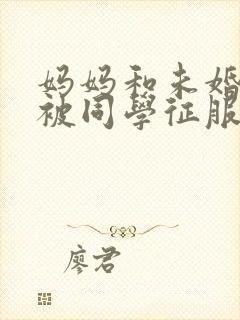 妈妈和未婚
被同學征服
廖君